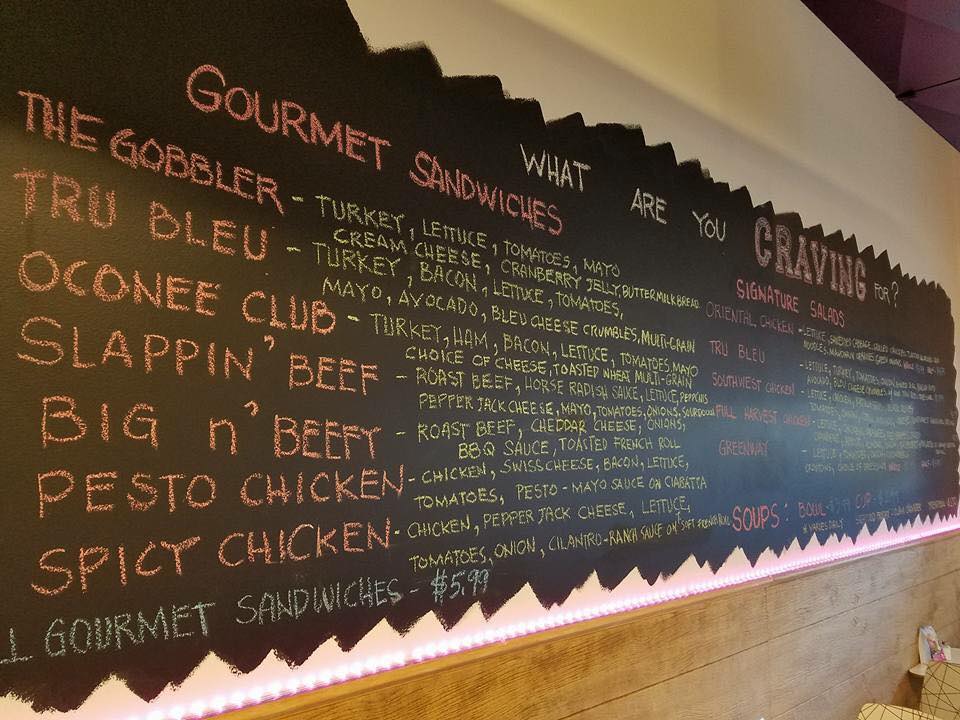 WHAT ARE YOU CRAVING FOR?
GOURMET SANDWICHES
THE GOBBLER - TURKEY, LETTUCE, TOMATOES, MAYO
CREAM CHEESE, CRANBERRY JELLY, BUTTERMILK BREAD
TRU BLEU - TURKEY, BACON, LETTUCE, TOMATOES,
MAYO, AVOCADO, BLEU CHEESE CRUMBLES, MULTI-GRAIN
OCONEE CLUB - TURKEY, HAM, BACON, LETTUCE, TOMATOES, MAYO
CHOICE OF CHEESE, TOASTED WHEAT MULTI-GRAIN
SLAPPIN' BEEF - ROAST BEEF, HORSE RADISH SAUCE, LETTUCE,
PEPPER JACK CHEESE, MAYO, TOMATOES, ONIONS, SOURDOUGH
BIG n' BEEFY - ROAST BEEF, CHEDDAR CHEESE, ONIONS,
BBQ SAUCE, TOASTED FRENCH ROLL
PESTO CHICKEN - CHICKEN, SWISS CHEESE, BACON, LETTUCE,
TOMATOES, PESTO-MAYO SAUCE ON CIABATTA
SPICY CHICKEN - CHICKEN, PEPPER JACK CHEESE, LETTUCE,
TOMATOES, ONION, CILANTRO-RANCH SAUCE ON SOFT FRENCH ROLL
GOURMET SANDWICHES - $5.99
SIGNATURE SALADS
ORIENTAL CHICKEN -
TRU BLEU - LETTUCE, TURKEY, TOMATOES,
AVOCADO, BLEU CHEESE CRUMBLES
SOUTHWEST CHICKEN - LETTUCE, CHICKEN,
FULL HARVEST CHICKEN -
GREENWAY - LETTUCE,
CROUTONS, CHOICE OF DRESSING
SOUPS: BOWL CUP